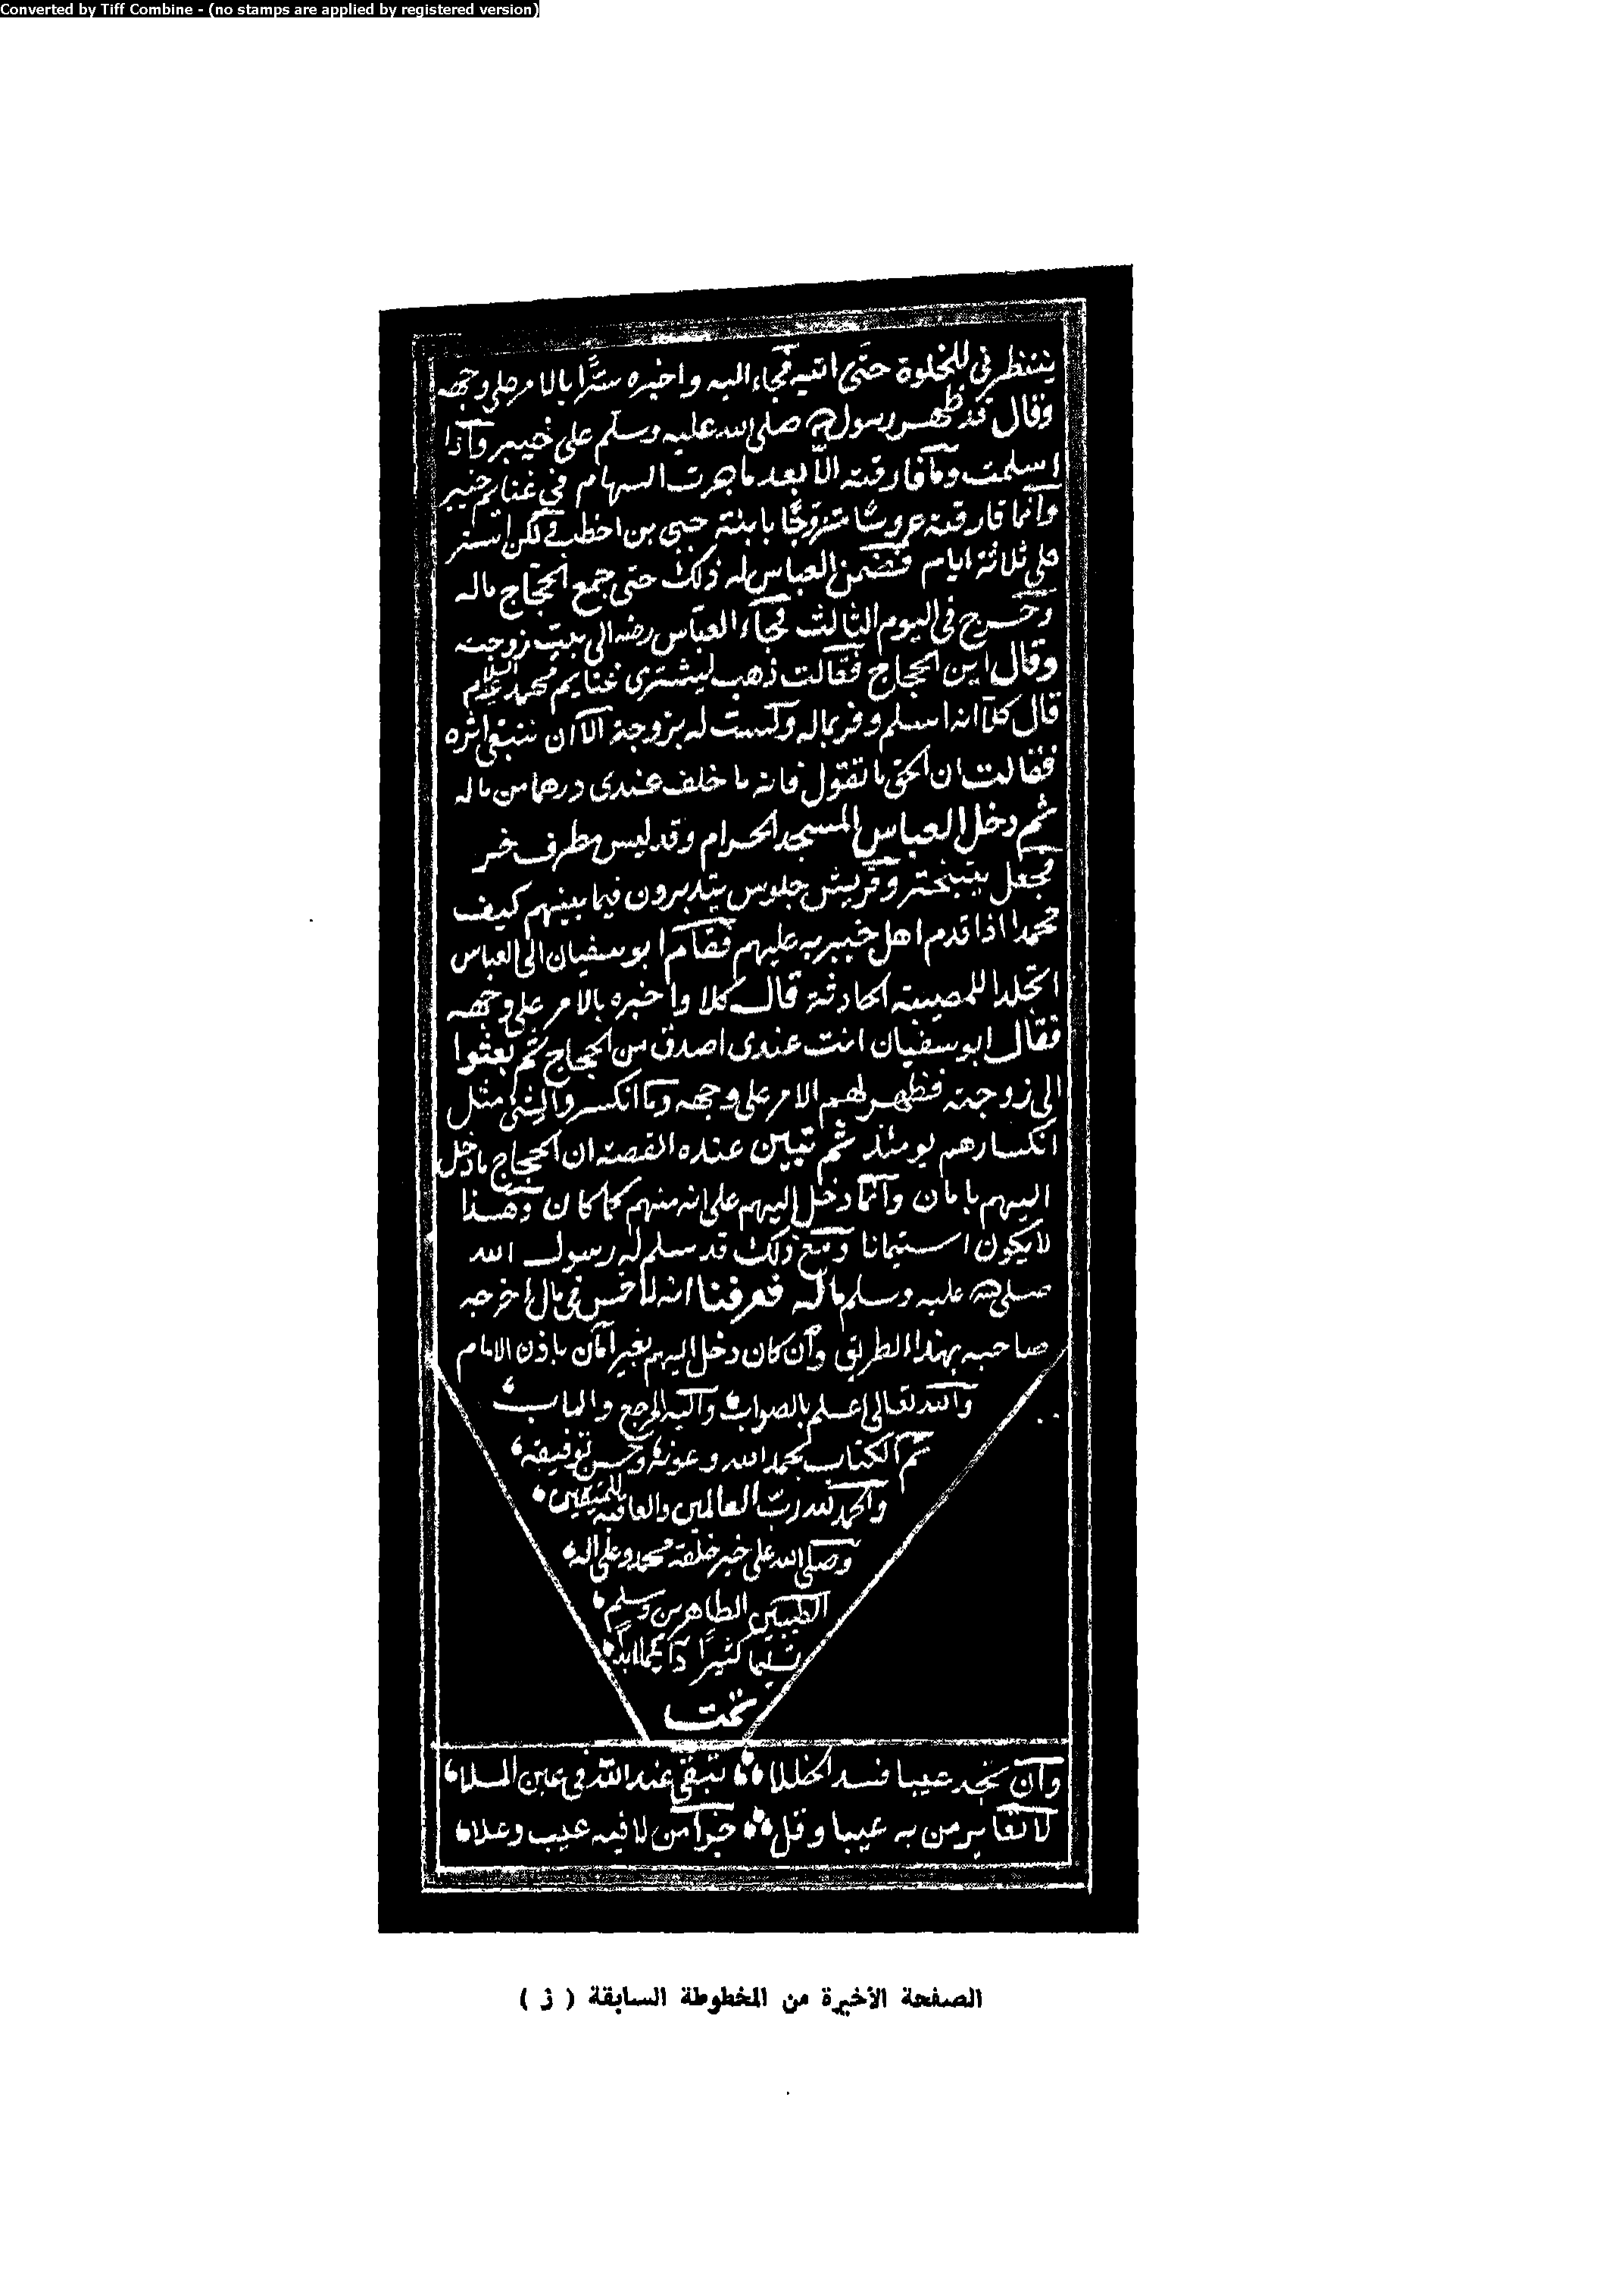 Converted by Tiff Combine - (no stamps are applied by registered version)
ينتظر في للخلوة حتى اتيه فجاء اليه واخبره سرًّا بالامر على وجهه
وقال قد ظهر رسول الله صلى الله عليه وسلم على خيبر وآذا
اسلمت وما فارقته الّا بعد ما جرت السهام في غنايم خيبر
وانما فارقته عروسًا متزوجًا بابنة حيى بن اخطب لكن استر
على ثلاثة ايام فضمن العباس له ذلك حتى جمع الحجاج ماله
وخرج فى اليوم الثالث فجاء العباس رضه الى بيت زوجته
وقال اين الحجاج فقالت ذهب ليشترى غنايم محمد عليه السلام
قال كلا انه اسلم وفر بماله وكست له بزوجة الا ان تتبقى اثره
فقالت ان الحق ما تقول فانه ما خلف عندى درهما من ماله
ثم دخل العباس المسجد الحرام وقد لبس مطرف خز
فجعل يتبختر وقريش جلوس يتدبرون فيما بينهم كيف
محمدا اذا قدم اهل خيبر به عليهم فقام ابو سفيان الى العباس
اتجلدا للمصيبة الحادثة قال كلا واخبره بالامر على وجهه
فقال ابو سفيان انت عندى اصدق من الحجاج ثم بعثوا
الى زوجته فظهر لهم الامر على وجهه وما انكسروا لشئ مثل
انكسارهم يومئذ ثم تبين عنده القصة ان الحجاج ما دخل
اليهم بامان وانما دخل اليهم على انه منهم كما كان وهذا
لا يكون استيمانا ومع ذلك قد سلم له رسول الله
صلى الله عليه وسلم ماله فعرفنا انه لا خمس فى مال اخرجه
صاحبه بهذا الطريق وان كان دخل اليهم بغير امان باذن الامام
والله تعالى اعلم بالصواب واليه المرجع والماب
تم الكتاب بحمد الله وعونه وحسن توفيقه
والحمد لله رب العالمين والعاقبة للمتقين
وصلى الله على خير خلقه محمد وعلى اله
الطيبين الطاهرين وسلم
تسليما كثيرًا دائما ابدا
تمت
وان تجد عيبا فسد الخللا تبقى عند الله في عاين الملا
لا تعاير من به عيبا وقل جز من لا فيه عيب وعلا
الصفحة الأخيرة من المخطوطة السابقة ( ز )